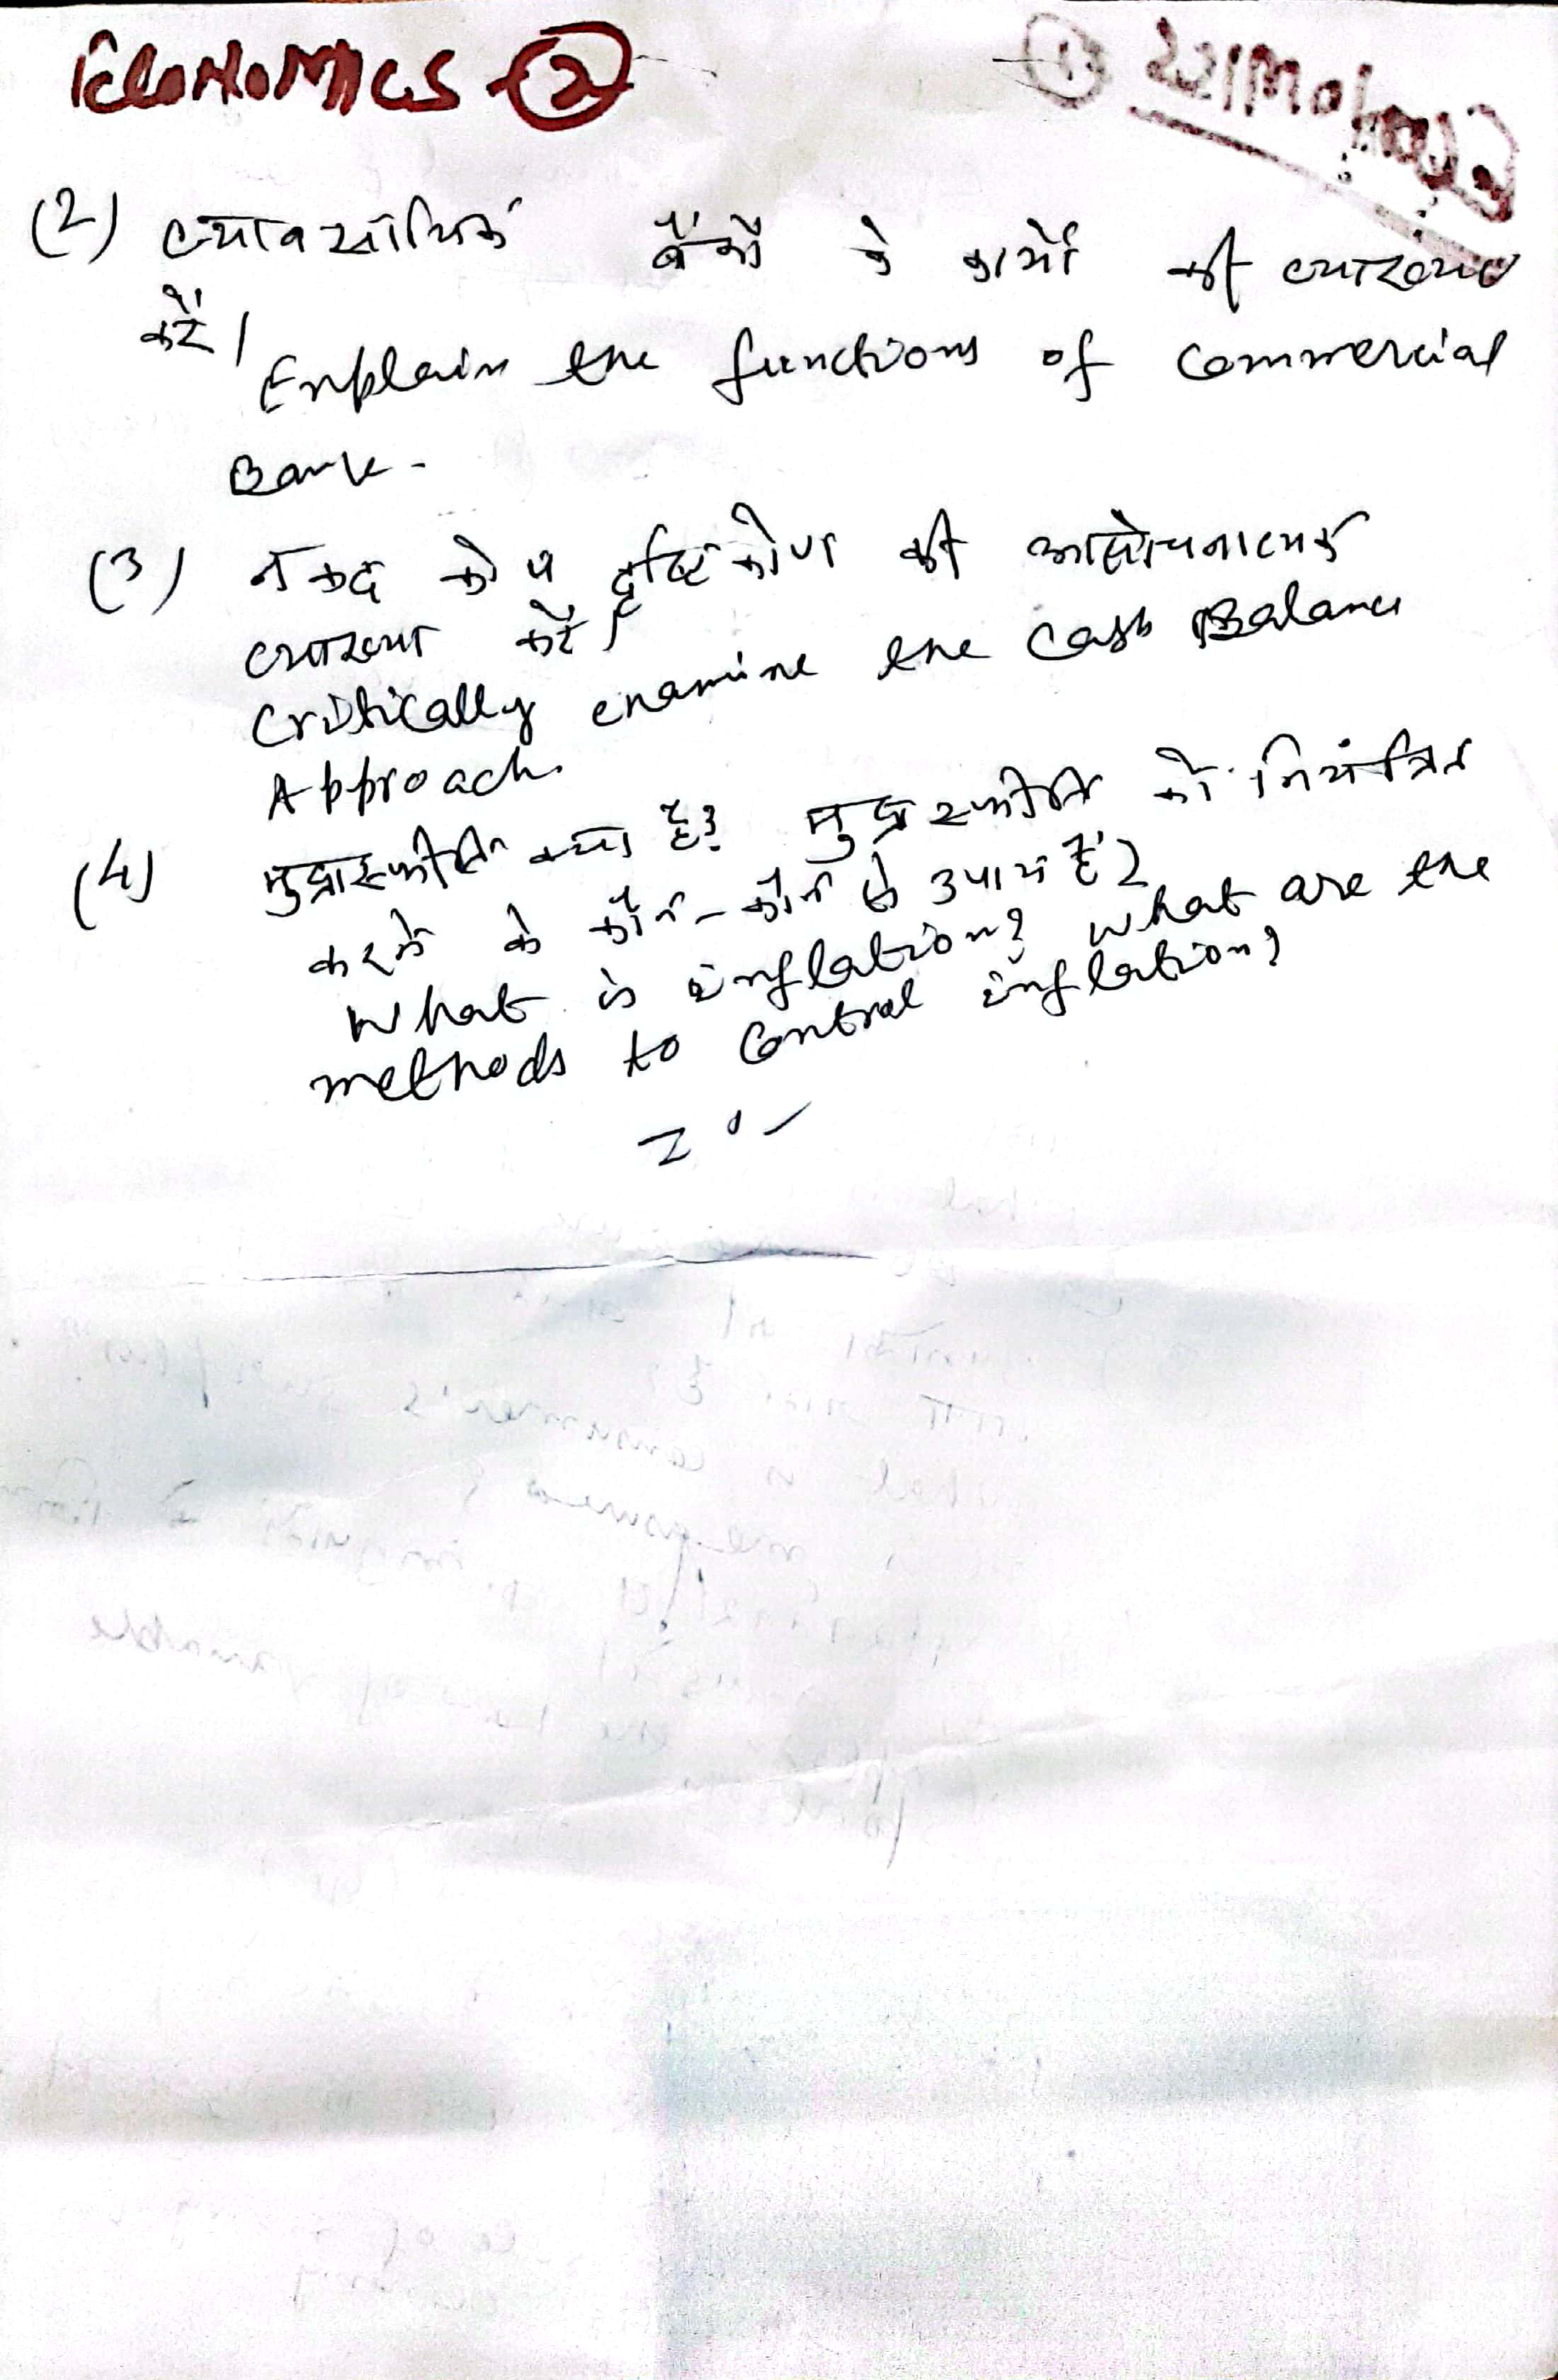 ECONOMICS (2)
ECONOMICS (1)
(2) व्यावसायिक बैंकों के कार्यों की व्याख्या
करें।
Explain the functions of Commercial
Bank.
(3) नकद कोष दृष्टिकोण की आलोचनात्मक
व्याख्या करें।
Critically examine the Cash Balance
Approach.
(4) मुद्रास्फीति क्या है? मुद्रास्फीति को नियंत्रित
करने के कौन-कौन से उपाय हैं?
What is inflation? What are the
methods to Control inflation?